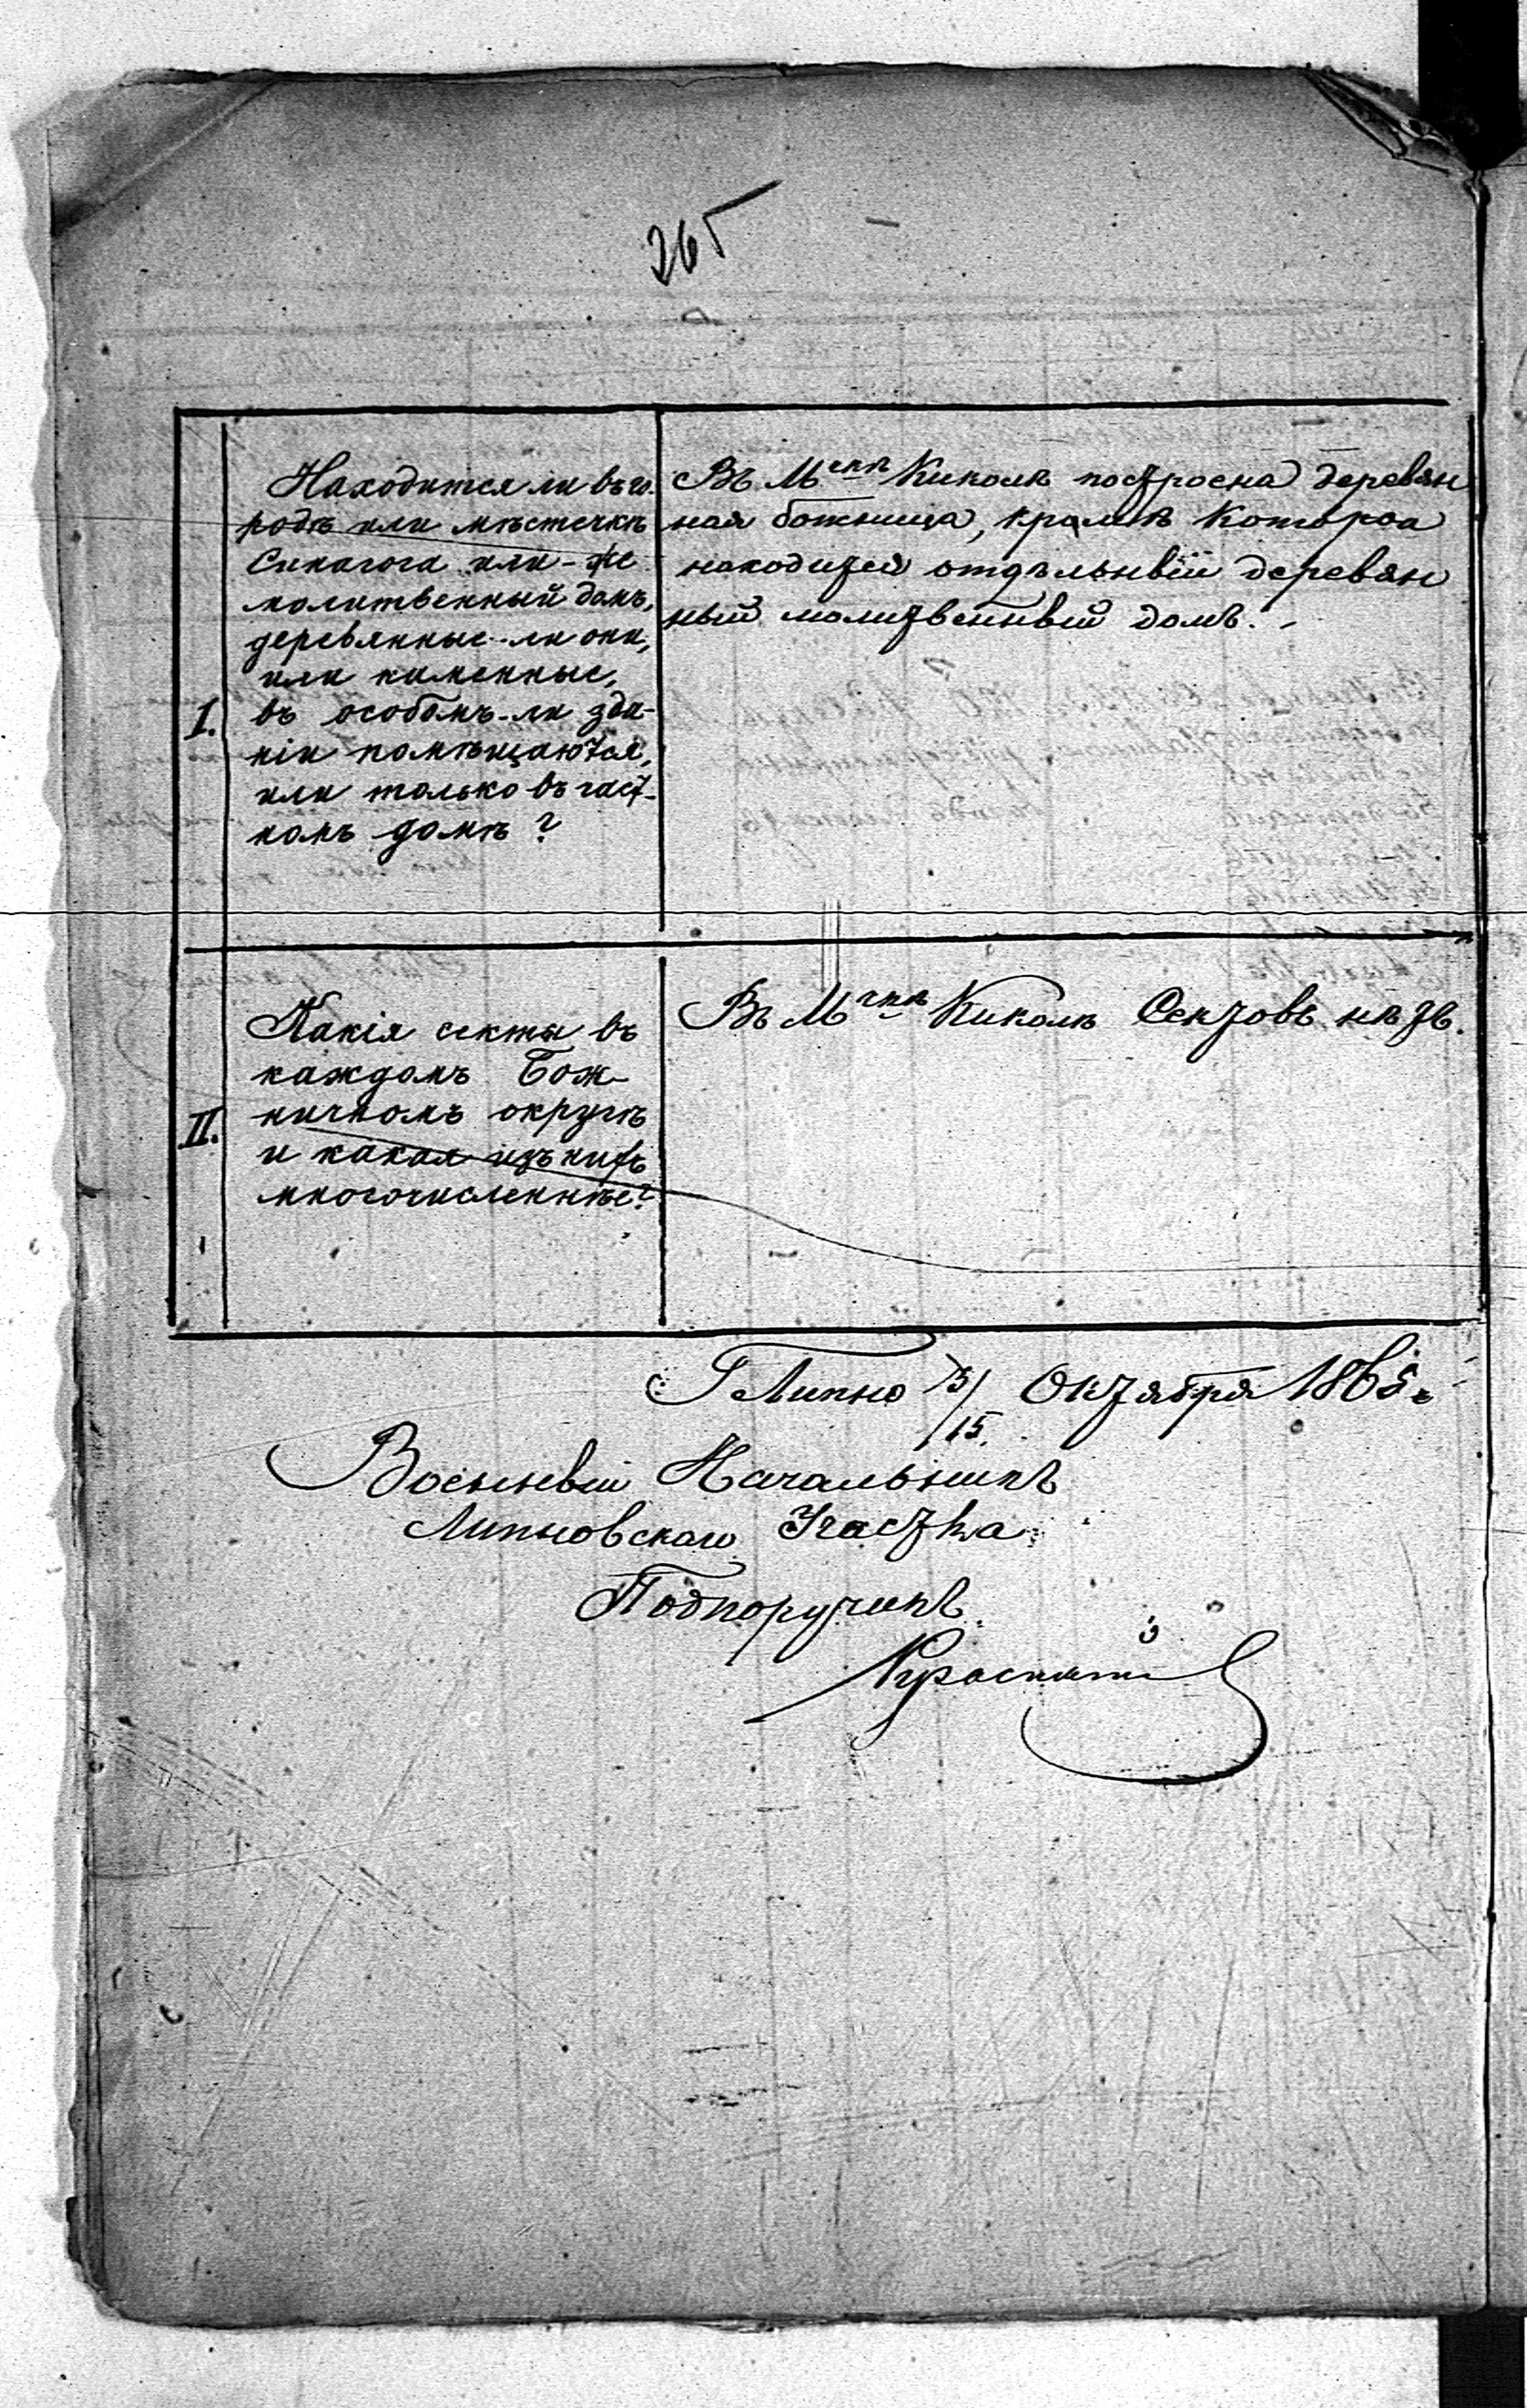 265
I.
Находится ли въ го-
родѣ или мѣстечкѣ
Синагога или-же
молитвенный домъ,
деревянные-ли они,
или каменные,
въ особомъ-ли зда-
ніи помѣщаются,
или только въ част-
номъ домѣ?
Въ М-чкѣ Киколѣ построена деревян
ная божница, кромѣ которой
находится отдѣльный деревян
ный молитвенный домъ.
II.
Какія секты въ
каждомъ Бож-
ничномъ округѣ
и какая изъ нихъ
многочисленнѣе?
Въ М-чкѣ Киколѣ Сектовъ нѣтъ.
Г Липно 3/15 Октября 1865
Военный Начальникъ
Липновскаго Участка
Подпоручикъ